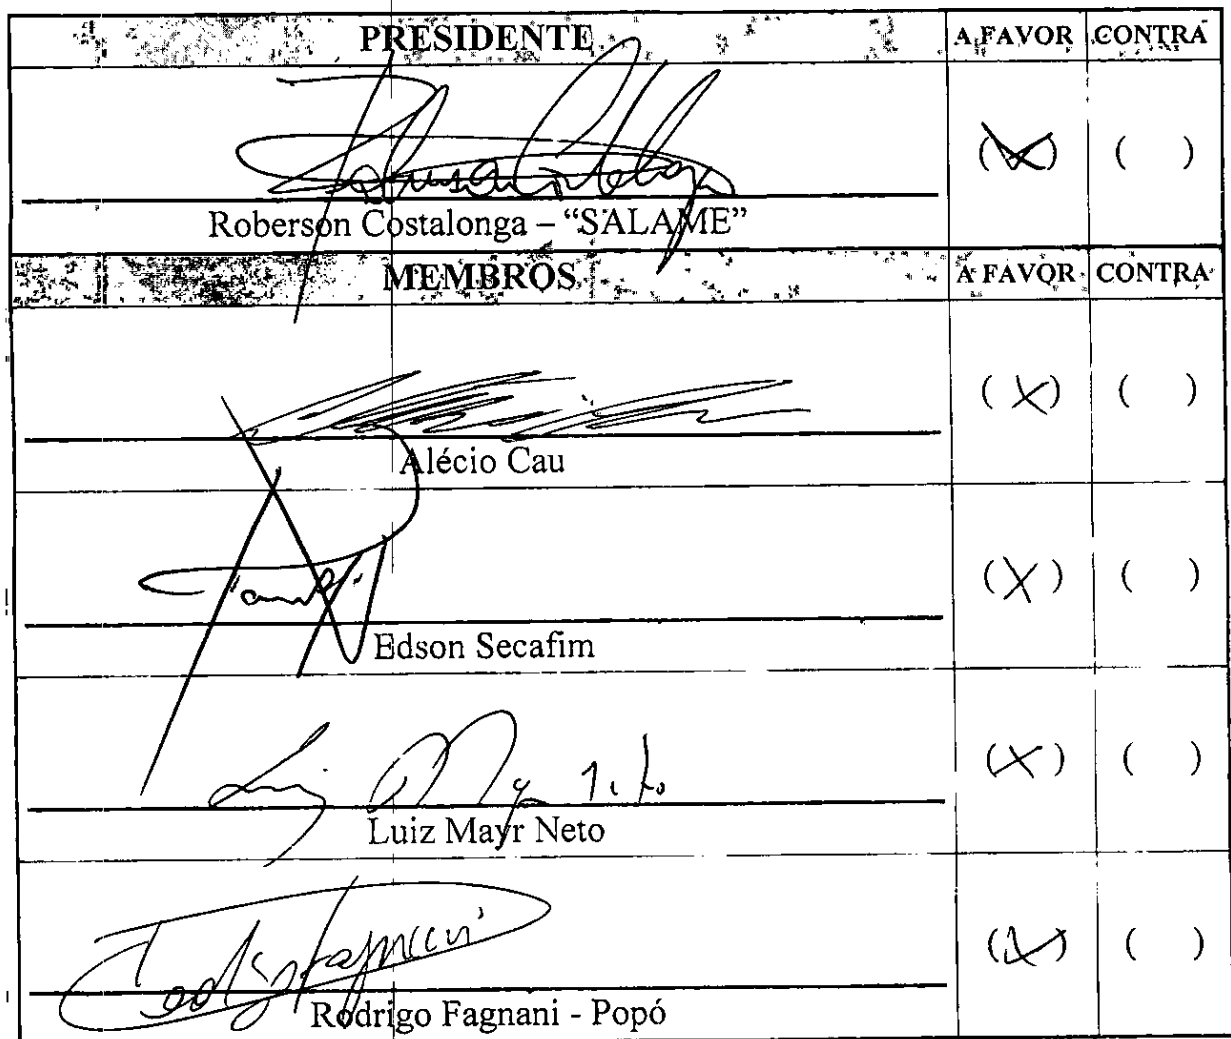 PRESIDENTE A FAVOR CONTRA
(X) ( )
Roberson Costalonga – "SALAME"
MEMBROS A FAVOR CONTRA
(X) ( )
Alécio Cau
(X) ( )
Edson Secafim
(X) ( )
Luiz Mayr Neto
(X) ( )
Rodrigo Fagnani - Popó